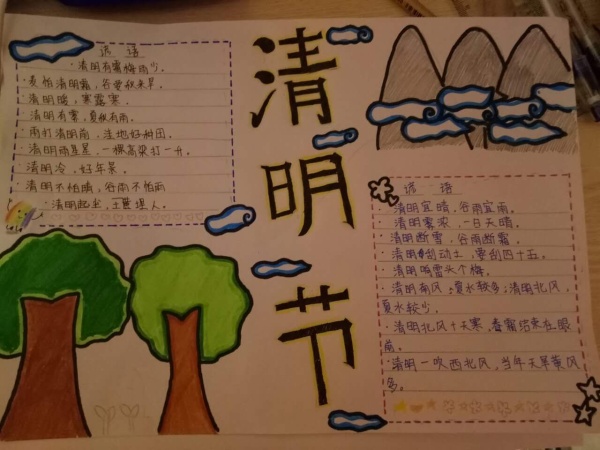 谚语
·清明有雾梅雨少。
·麦怕清明霜，谷要秋来旱。
·清明暖，寒露寒。
·清明有雾，夏秋有雨。
·雨打清明前，洼地好种田。
·清明雨星星，一棵高粱打一升。
·清明冷，好年景。
·清明不怕晴，谷雨不怕雨
·清明起尘，土埋人。
清明节
谚语
·清明宜晴，谷雨宜雨。
·清明雾浓，一日天晴。
·清明断雪，谷雨断霜。
·清明刮动土，要刮四十五。
·清明响雷头个梅。
·清明南风，夏水较多；清明北风，
夏水较少。
·清明北风十天寒，春霜结束在眼
前。
·清明一吹西北风，当年天旱黄风
多。